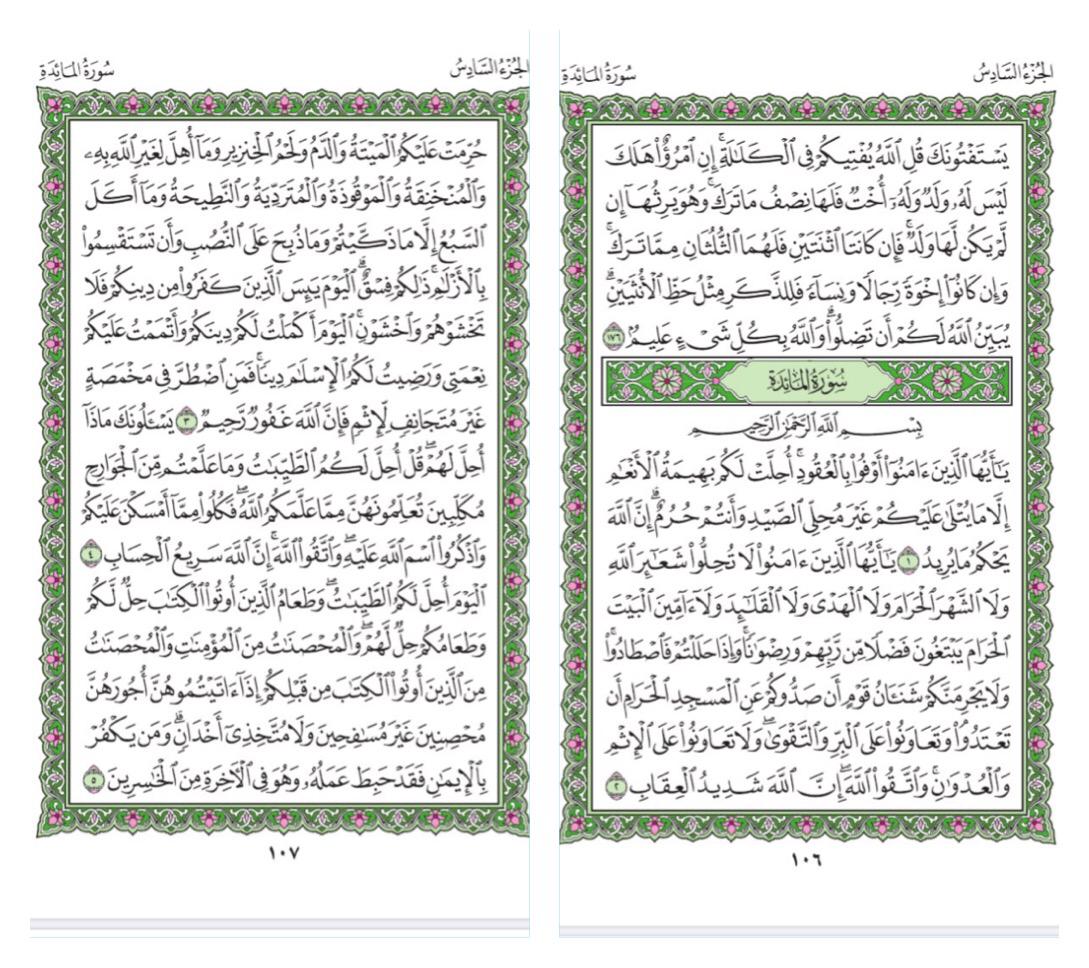 الجُزْءُ السَّادِسُ
سُورَةُ المَائِدَةِ
يَسۡتَفۡتُونَكَ قُلِ ٱللَّهُ يُفۡتِيكُمۡ فِي ٱلۡكَلَٰلَةِۚ إِنِ ٱمۡرُؤٌاْ هَلَكَ
لَيۡسَ لَهُۥ وَلَدٞ وَلَهُۥٓ أُخۡتٞ فَلَهَا نِصۡفُ مَا تَرَكَۚ وَهُوَ يَرِثُهَآ إِن
لَّمۡ يَكُن لَّهَا وَلَدٞۚ فَإِن كَانَتَا ٱثۡنَتَيۡنِ فَلَهُمَا ٱلثُّلُثَانِ مِمَّا تَرَكَۚ
وَإِن كَانُوٓاْ إِخۡوَةٗ رِّجَالٗا وَنِسَآءٗ فَلِلذَّكَرِ مِثۡلُ حَظِّ ٱلۡأُنثَيَيۡنِۗ
يُبَيِّنُ ٱللَّهُ لَكُمۡ أَن تَضِلُّواْۗ وَٱللَّهُ بِكُلِّ شَيۡءٍ عَلِيمُۢ ١٧٦
سُورَةُ المَائِدَةِ
بِسۡمِ ٱللَّهِ ٱلرَّحۡمَٰنِ ٱلرَّحِيمِ
يَٰٓأَيُّهَا ٱلَّذِينَ ءَامَنُوٓاْ أَوۡفُواْ بِٱلۡعُقُودِۚ أُحِلَّتۡ لَكُم بَهِيمَةُ ٱلۡأَنۡعَٰمِ
إِلَّا مَا يُتۡلَىٰ عَلَيۡكُمۡ غَيۡرَ مُحِلِّي ٱلصَّيۡدِ وَأَنتُمۡ حُرُمٌۗ إِنَّ ٱللَّهَ
يَحۡكُمُ مَا يُرِيدُ ١ يَٰٓأَيُّهَا ٱلَّذِينَ ءَامَنُواْ لَا تُحِلُّواْ شَعَٰٓئِرَ ٱللَّهِ
وَلَا ٱلشَّهۡرَ ٱلۡحَرَامَ وَلَا ٱلۡهَدۡيَ وَلَا ٱلۡقَلَٰٓئِدَ وَلَآ ءَآمِّينَ ٱلۡبَيۡتَ
ٱلۡحَرَامَ يَبۡتَغُونَ فَضۡلٗا مِّن رَّبِّهِمۡ وَرِضۡوَٰنٗاۚ وَإِذَا حَلَلۡتُمۡ فَٱصۡطَادُواْۚ
وَلَا يَجۡرِمَنَّكُمۡ شَنَـَٔانُ قَوۡمٍ أَن صَدُّوكُمۡ عَنِ ٱلۡمَسۡجِدِ ٱلۡحَرَامِ أَن
تَعۡتَدُواْۘ وَتَعَاوَنُواْ عَلَى ٱلۡبِرِّ وَٱلتَّقۡوَىٰۖ وَلَا تَعَاوَنُواْ عَلَى ٱلۡإِثۡمِ
وَٱلۡعُدۡوَٰنِۚ وَٱتَّقُواْ ٱللَّهَۖ إِنَّ ٱللَّهَ شَدِيدُ ٱلۡعِقَابِ ٢
١٠٦
الجُزْءُ السَّادِسُ
سُورَةُ المَائِدَةِ
حُرِّمَتۡ عَلَيۡكُمُ ٱلۡمَيۡتَةُ وَٱلدَّمُ وَلَحۡمُ ٱلۡخِنزِيرِ وَمَآ أُهِلَّ لِغَيۡرِ ٱللَّهِ بِهِۦ
وَٱلۡمُنۡخَنِقَةُ وَٱلۡمَوۡقُوذَةُ وَٱلۡمُتَرَدِّيَةُ وَٱلنَّطِيحَةُ وَمَآ أَكَلَ
ٱلسَّبُعُ إِلَّا مَا ذَكَّيۡتُمۡ وَمَا ذُبِحَ عَلَى ٱلنُّصُبِ وَأَن تَسۡتَقۡسِمُواْ
بِٱلۡأَزۡلَٰمِۚ ذَٰلِكُمۡ فِسۡقٌۗ ٱلۡيَوۡمَ يَئِسَ ٱلَّذِينَ كَفَرُواْ مِن دِينِكُمۡ فَلَا
تَخۡشَوۡهُمۡ وَٱخۡشَوۡنِۚ ٱلۡيَوۡمَ أَكۡمَلۡتُ لَكُمۡ دِينَكُمۡ وَأَتۡمَمۡتُ عَلَيۡكُمۡ
نِعۡمَتِي وَرَضِيتُ لَكُمُ ٱلۡإِسۡلَٰمَ دِينٗاۚ فَمَنِ ٱضۡطُرَّ فِي مَخۡمَصَةٍ
غَيۡرَ مُتَجَانِفٖ لِّإِثۡمٖ فَإِنَّ ٱللَّهَ غَفُورٞ رَّحِيمٞ ٣ يَسۡـَٔلُونَكَ مَاذَآ
أُحِلَّ لَهُمۡۖ قُلۡ أُحِلَّ لَكُمُ ٱلطَّيِّبَٰتُ وَمَا عَلَّمۡتُم مِّنَ ٱلۡجَوَارِحِ
مُكَلِّبِينَ تُعَلِّمُونَهُنَّ مِمَّا عَلَّمَكُمُ ٱللَّهُۖ فَكُلُواْ مِمَّآ أَمۡسَكۡنَ عَلَيۡكُمۡ
وَٱذۡكُرُواْ ٱسۡمَ ٱللَّهِ عَلَيۡهِۖ وَٱتَّقُواْ ٱللَّهَۚ إِنَّ ٱللَّهَ سَرِيعُ ٱلۡحِسَابِ ٤
ٱلۡيَوۡمَ أُحِلَّ لَكُمُ ٱلطَّيِّبَٰتُۖ وَطَعَامُ ٱلَّذِينَ أُوتُواْ ٱلۡكِتَٰبَ حِلّٞ لَّكُمۡ
وَطَعَامُكُمۡ حِلّٞ لَّهُمۡۖ وَٱلۡمُحۡصَنَٰتُ مِنَ ٱلۡمُؤۡمِنَٰتِ وَٱلۡمُحۡصَنَٰتُ
مِنَ ٱلَّذِينَ أُوتُواْ ٱلۡكِتَٰبَ مِن قَبۡلِكُمۡ إِذَآ ءَاتَيۡتُمُوهُنَّ أُجُورَهُنَّ
مُحۡصِنِينَ غَيۡرَ مُسَٰفِحِينَ وَلَا مُتَّخِذِيٓ أَخۡدَانٖۗ وَمَن يَكۡفُرۡ
بِٱلۡإِيمَٰنِ فَقَدۡ حَبِطَ عَمَلُهُۥ وَهُوَ فِي ٱلۡأٓخِرَةِ مِنَ ٱلۡخَٰسِرِينَ ٥
١٠٧